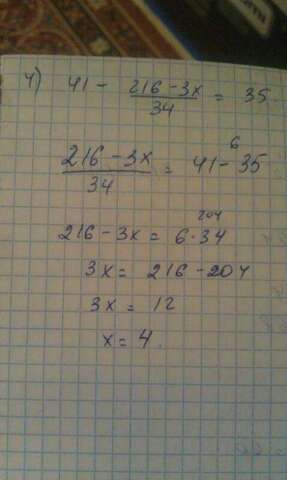 4) 41 - (216 - 3x)/34 = 35.
(216 - 3x)/34 = 41 - 35
6
216 - 3x = 6 · 34
204
3x = 216 - 204
3x = 12
x = 4.